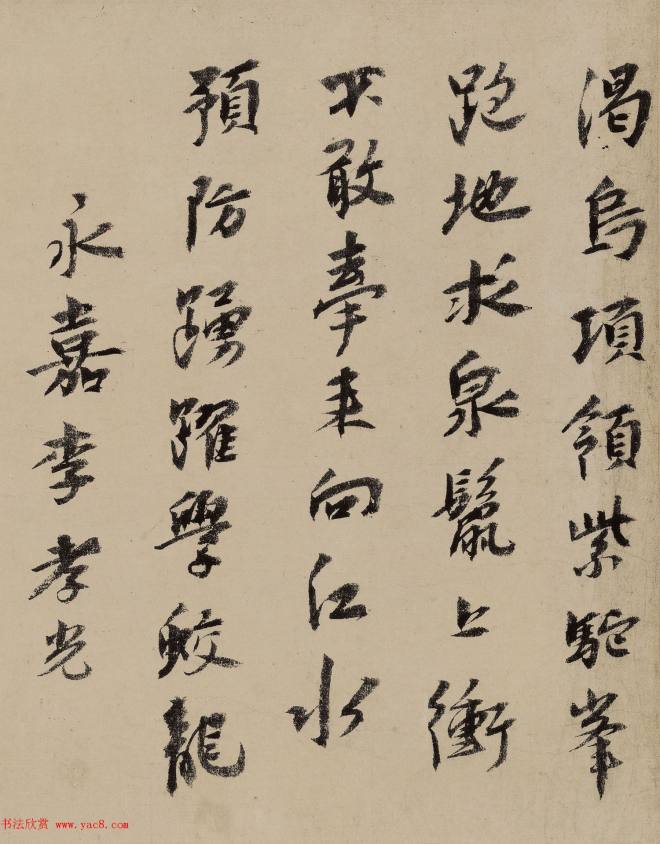 渴烏項領紫駝峯
跑地求泉鬣上衝
不敢牽来向江水
預防踴躍學蛟龍
永嘉李孝光
书法欣赏 www.yac8.com